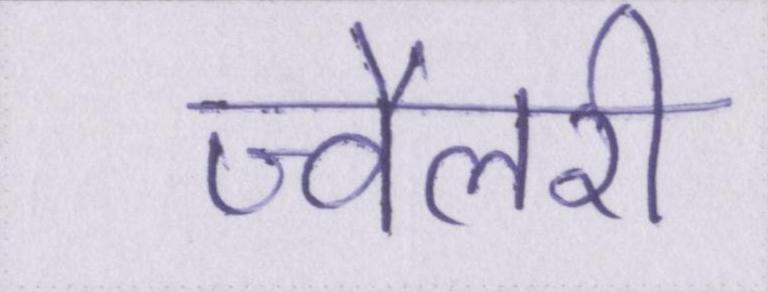 ज्वैलरी